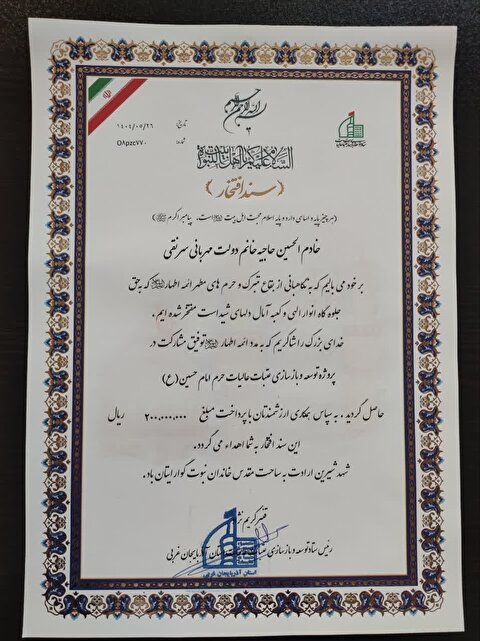 بسم الله الرحمن الرحیم
تاریخ: ۱۴۰۴/۰۵/۲۶
شماره: O۸pzcv۷۰
السلام علیکم یا اهل بیت النبوة
(سند افتخار)
(هر چیز پایه و اساسی دارد و پایه اسلام محبت اهل بیت است. پیامبر اکرم)
خادم الحسین حاجیه خانم دولت مهربانی سرنقی
بر خود می بالیم که به نگاهبانی از بقاع متبرک و حرم های مطهر ائمه اطهار که به حق
جلوه گاه انوار الهی و کعبه آمال دلهای شیداست مفتخر شده ایم.
خدای بزرگ را شاکریم که به مدد ائمه اطهار توفیق مشارکت در
پروژه توسعه و بازسازی عتبات عالیات حرم امام حسین (ع)
حاصل گردید، به سپاس همکاری ارزشمندتان با پرداخت مبلغ ۲۰۰,۰۰۰,۰۰۰ ریال
این سند افتخار به شما اهداء می گردد.
شهد شیرین ارادت به ساحت مقدس خاندان نبوت گوارایتان باد.
کریم
رئیس ستاد توسعه و بازسازی آذربایجان غربی
استان آذربایجان غربی